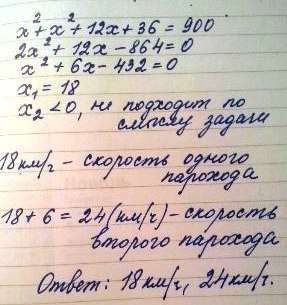 x² + x² + 12x + 36 = 900
2x² + 12x - 864 = 0
x² + 6x - 432 = 0
x₁ = 18
x₂ < 0, не подходит по
смыслу задачи
18 км/г - скорость одного
парохода
18 + 6 = 24 (км/ч) - скорость
второго парохода
Ответ: 18 км/г, 24 км/г.